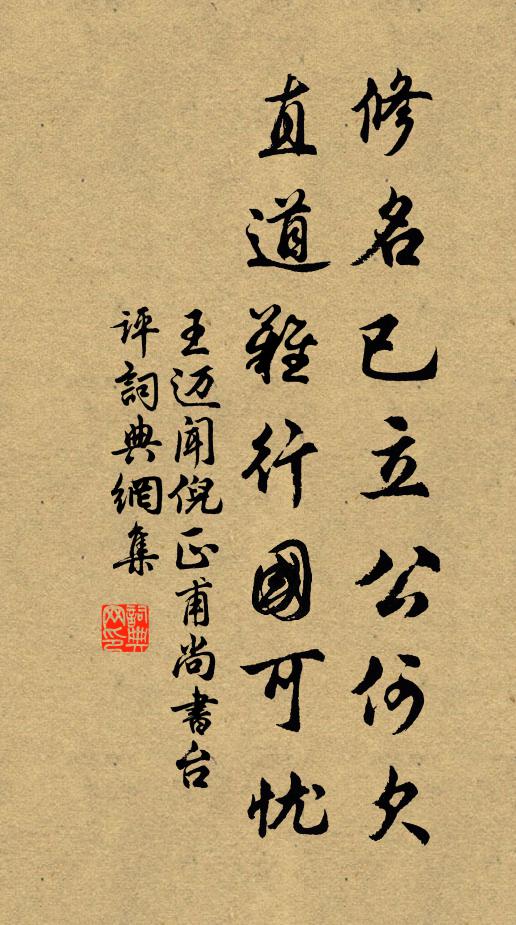 修名已立公何欠
直道难行國可忧
王迈闻倪正甫尚書台
评詞典網集
詞典
网印